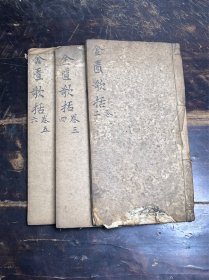 金匱歌括 卷一 二
金匱歌括 卷三 四
金匱歌括 卷五 六